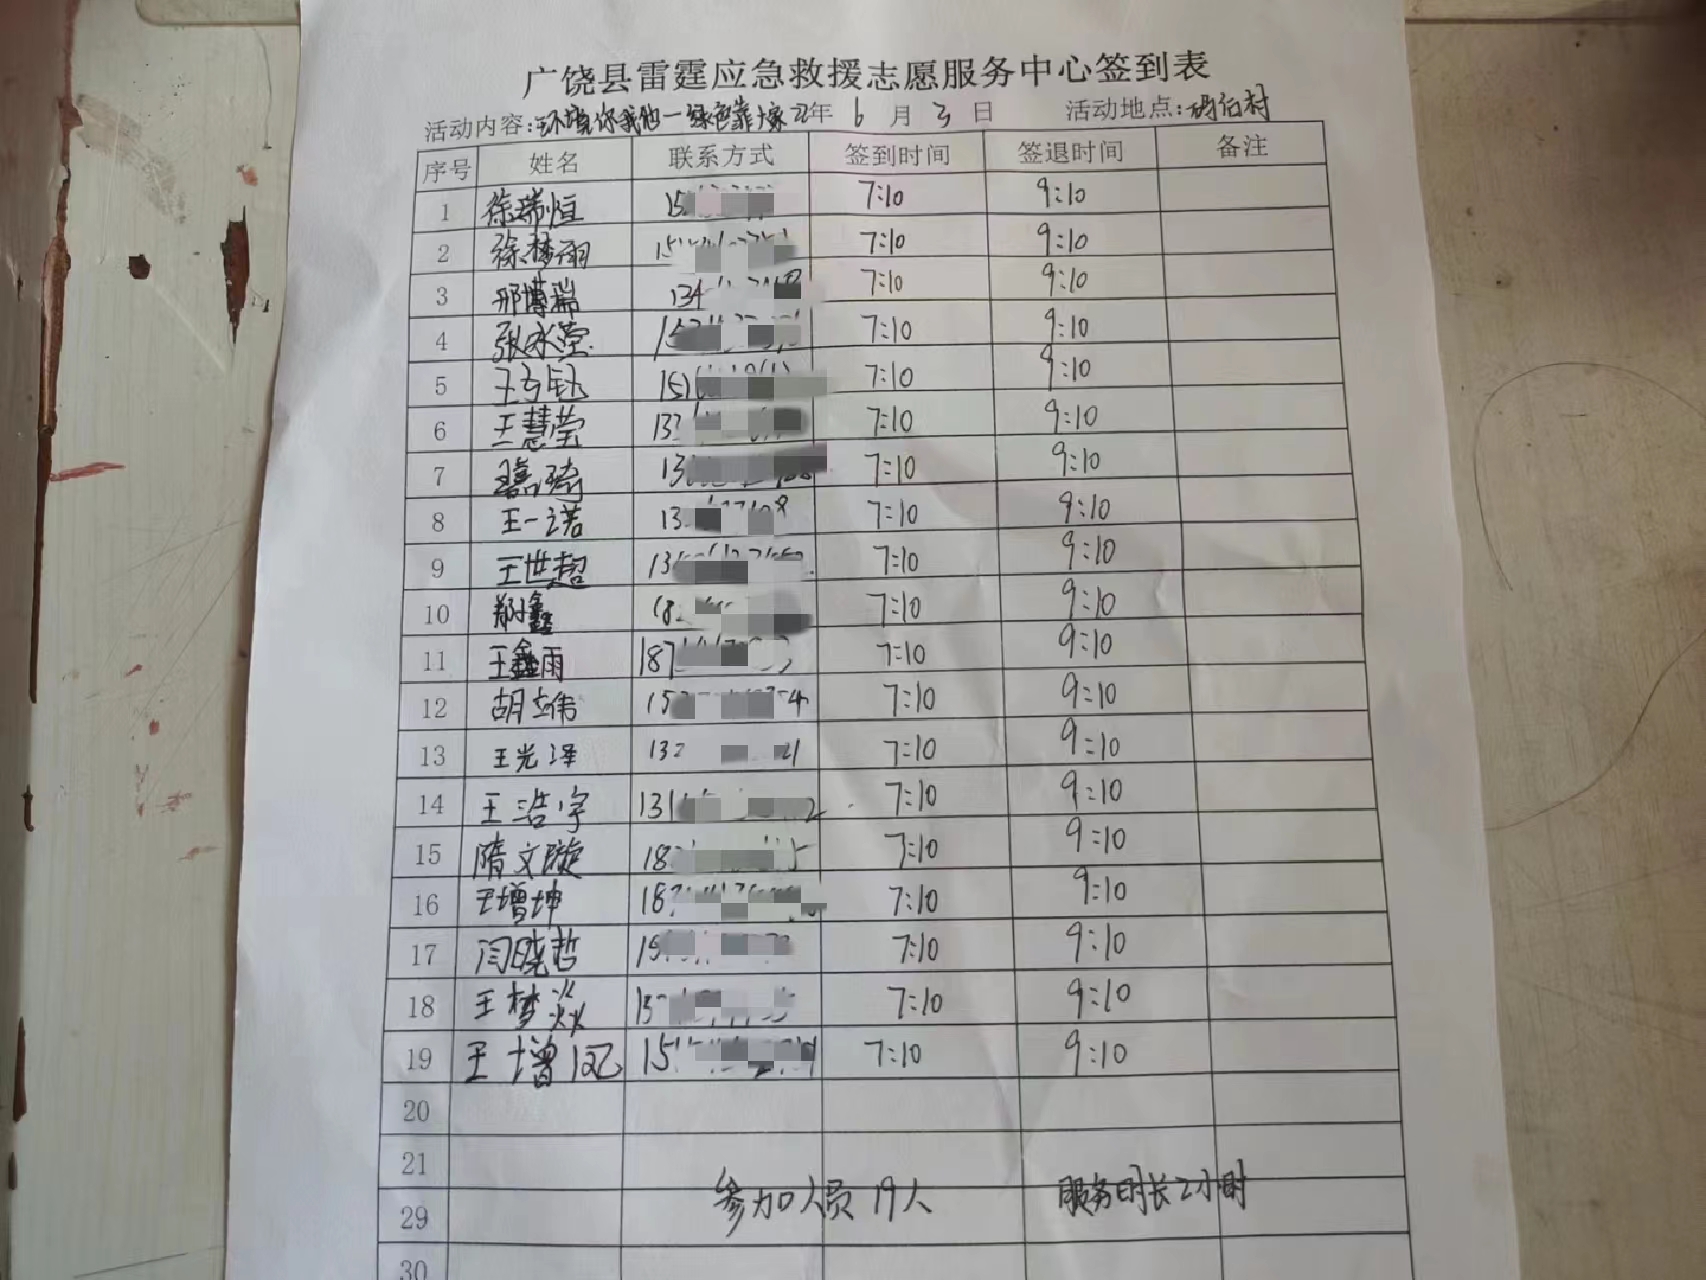 广饶县雷霆应急救援志愿服务中心签到表
活动内容:环境你我他一绿色靠大家 22年 6 月 3 日 活动地点:
序号 姓名 联系方式 签到时间 签退时间 备注
1 徐瑞恒 15 7:10 9:10
2 徐梦雨 15 7:10 9:10
3 邢博瑞 134 7:10 9:10
4 张冰莹 15 7:10 9:10
5 王 钰 151 7:10 9:10
6 王慧莹 133 7:10 9:10
7 琦 13 7:10 9:10
8 王一诺 13 7:10 9:10
9 王世超 13 7:10 9:10
10 鑫 18 7:10 9:10
11 王鑫雨 187 7:10 9:10
12 胡 伟 15 7:10 9:10
13 王光泽 132 7:10 9:10
14 王浩宇 131 2 7:10 9:10
15 隋文璇 18 5 7:10 9:10
16 王增坤 18 7:10 9:10
17 闫晓哲 15 7:10 9:10
18 王梦焱 15 7:10 9:10
19 王增 15 7:10 9:10
20
21
参加人员19人 服务时长2小时
29
30